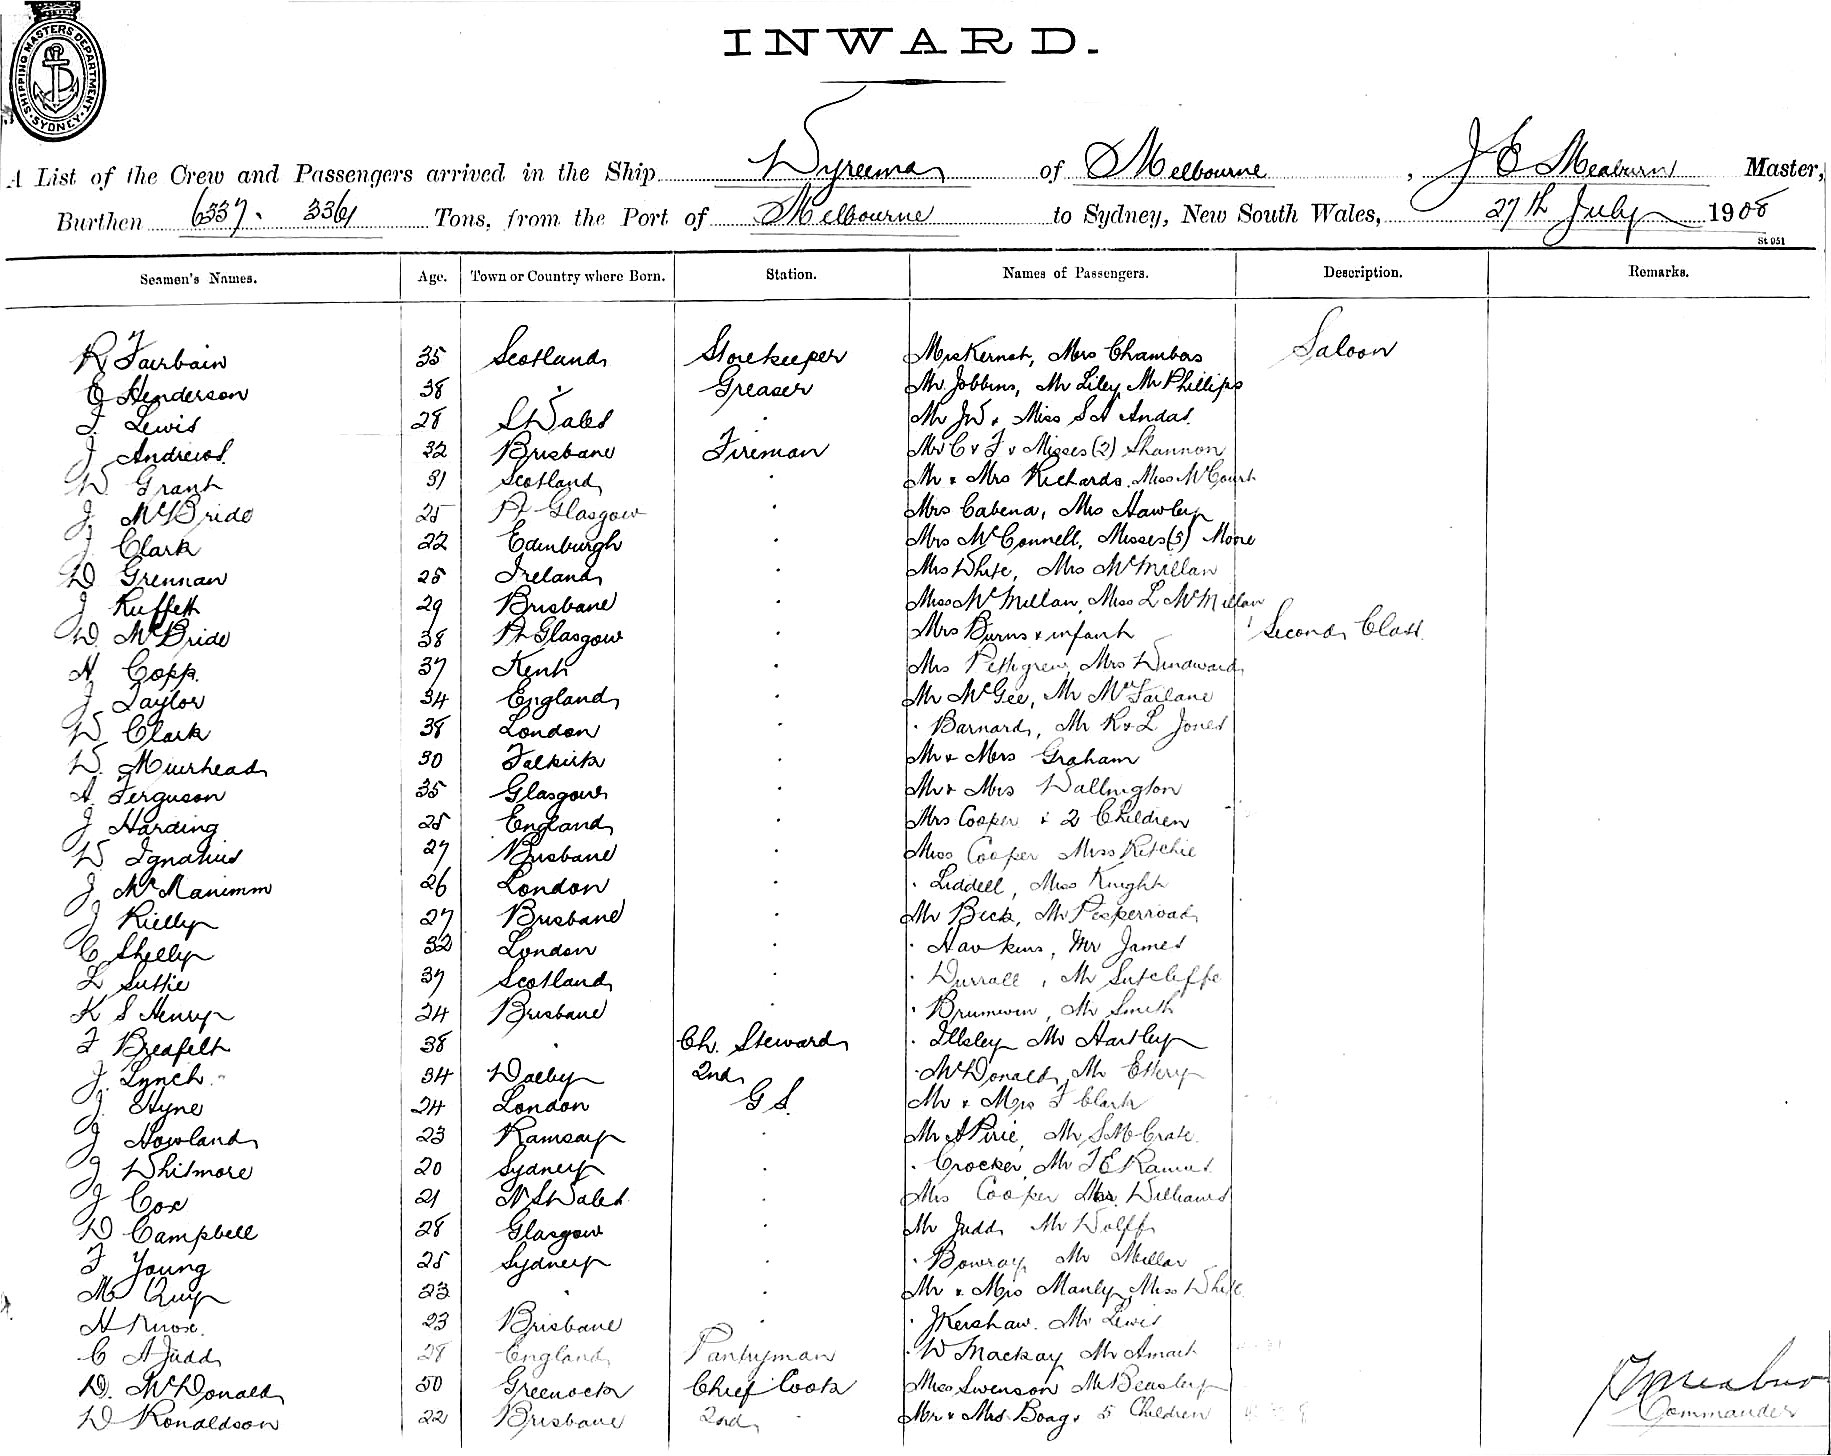 SHIPPING MASTERS DEPARTMENT SYDNEY
INWARD.
A List of the Crew and Passengers arrived in the Ship Wyreema of Melbourne, J E Meaburn Master,
Burthen 6337. 3361 Tons, from the Port of Melbourne to Sydney, New South Wales, 27th July 1908
St 051
Seamen's Names. Age. Town or Country where Born. Station. Names of Passengers. Description. Remarks.
R Fairbain 35 Scotland Storekeeper Mrs Chambers Saloon
Henderson 38 " Greaser Mr Jobbins, Mr Liley Mr Phillips
Lewis 28 S Wales . Mr JW & Miss S A Andas
J Andrews 32 Brisbane Fireman Mr C & F & Misses (2) Shannon
W Grant 31 Scotland . Mr & Mrs Richards. Miss McCourt
J McBride 25 Pt Glasgow . Mrs Cabena, Mrs Hawley
J Clark 22 Edinburgh . Mrs McConnell, Misses (3) Mone
W Grennan 25 Ireland . Mrs White, Mrs McMillan
J Ruffett 29 Brisbane . Miss McMillan, Miss L McMillan
W McBride 38 Pt Glasgow . Mrs Burns & infant Second Class
H Copp. 37 Kent . Mrs Pettigrew, Mrs Windward
J Taylor 34 England . Mr McGee, Mr McFarlane
W Clark 38 London . . Barnard, Mr R & L Jones
W. Muirhead 30 Falkirk . Mr & Mrs Graham
A Ferguson 35 Glasgow . Mr & Mrs Wallington
J Harding 25 England . Mrs Cooper & 2 Children
W Ignatius 27 Brisbane . Miss Cooper Miss Ritchie
J McManimm 26 London . . Liddell, Miss Knight
J Rielly 27 Brisbane . Mr Beck, Mr
C Shelly 32 London . . Hawkins, Mr James
L Suttie 37 Scotland . . Durrall, Mr Sutcliffe
K S Henry 24 Brisbane . . Mr Smith
F Breafelt 38 . Ch. Steward . Illsley Mr Hartley
J Lynch 34 Dalby 2nd . McDonald, Mr Ellery
J. Hyne 24 London G S. Mr & Mrs F Clark
J Howland 23 Ramsay . Mr A Pirie, Mr S McCrate
J Whitmore 20 Sydney . . Crocker, Mr F E Ramus
J Cox 21 N S Wales . Mrs Cooper Williams
D Campbell 28 Glasgow . Mr Judd Mr Wolff
F Young 25 Sydney . . Bowray, Mr Millar
M Quip 23 . . Mr & Mrs Manly, Miss White
H Knox. 23 Brisbane . . J Kershaw. Mr Lewis
C A Judd 28 England Pantryman . W Mackay Mr Amait
D. McDonald 50 Greenock Chief Cook Miss Swenson Mr Beasley
W Ronaldson 22 Brisbane 2nd . Mr & Mrs Boag & 5 Children
J E Meaburn
Commander